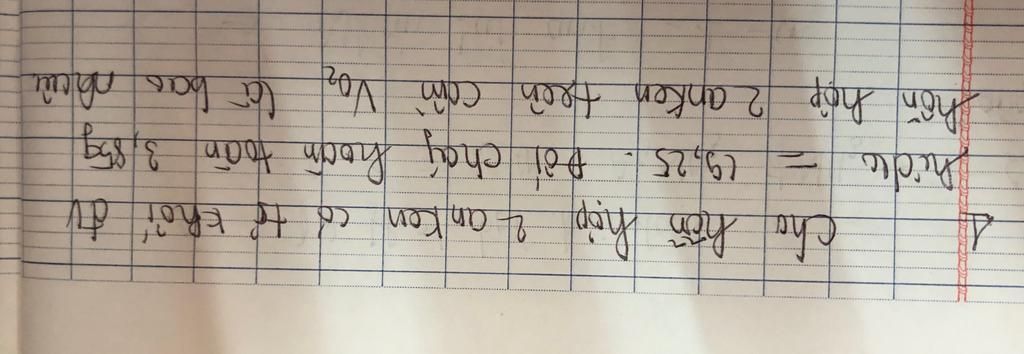 1 Cho hỗn hợp 2 anken có tỉ khối đv
hiđro = 19,25. Đốt cháy hoàn toàn 3,85g
hỗn hợp 2 anken trên cần VO₂ là bao nhiêu